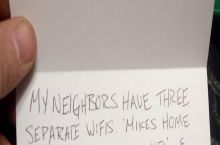 MY NEIGHBORS HAVE THREE
SEPARATE WIFIS. 'MIKES HOME